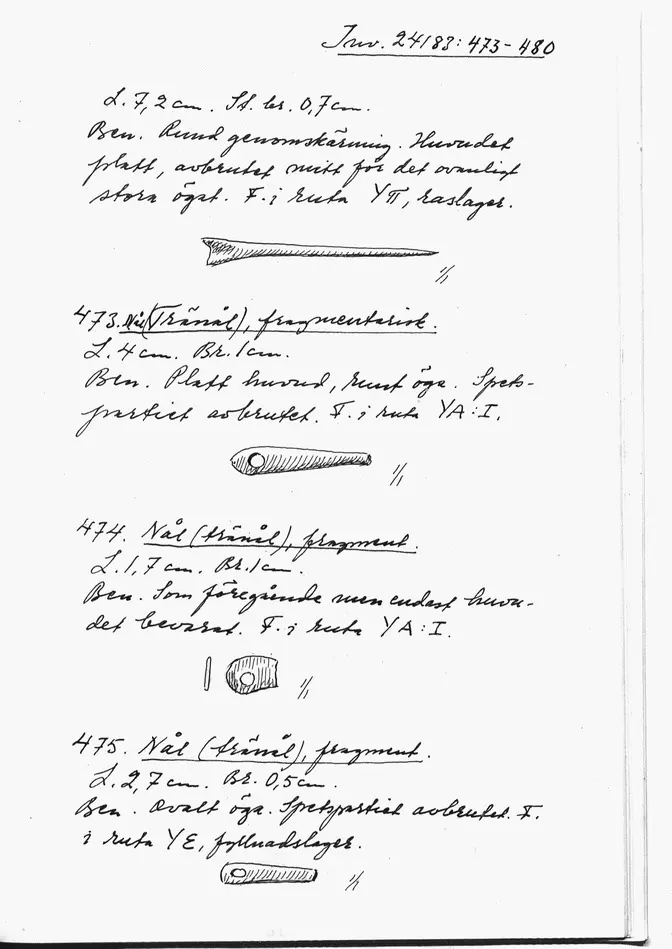 Inv. 24183:473-480
L. 7,2 cm. St. br. 0,7 cm.
Ben. Rund genomskärning. Huvudet
platt, avbrutet mitt för det ovanligt
stora ögat. F. i ruta YΠ, raslager.
1/1
473. Nål (Tränål), fragmentarisk.
L. 4 cm. Br. 1 cm.
Ben. Platt huvud, runt öga. Spets-
partiet avbrutet. F. i ruta YA:I.
1/1
474. Nål (tränål), fragment.
L. 1,7 cm. Br. 1 cm.
Ben. Som föregående men endast huvu-
det bevarat. F. i ruta YA:I.
1/1
475. Nål (tränål), fragment.
L. 2,7 cm. Br. 0,5 cm.
Ben. Ovalt öga. Spetspartiet avbrutet. F.
i ruta YE, fyllnadslager.
1/1